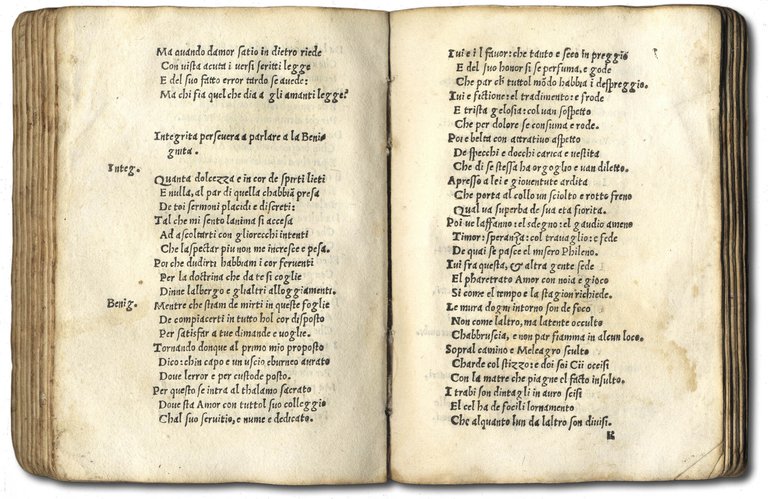 Ma quando damor satio in dietro riede
Con vista acuta i versi scritti legge
E del suo fatto error tardo se auede:
Ma chi fia quel che dia a gli amanti legge?
Integrita perseuera a parlare a la Beni
gnita.
Integ.
Quanta dolcezza e in cor de spirti lieti
E nulla, al par di quella chabbiā presa
De toi sermoni placidi e discreti:
Tal che mi sento lanima si accesa
Ad ascoltarti con gliorecchi intenti
Che laspectar piu non me incresce e pesa.
Poi che dudirti habbiam i cor feruenti
Per la doctrina che da te si coglie
Dinne lalbergo e glialtri alloggiamenti.
Benig.
Mentre che stiam de mirti in queste foglie
De compiacerti in tutto hol cor disposto
Per satisfar a tue dimande e voglie.
Tornando donque al primo mio proposto
Dico: chin capo e un uscio eburneo aurato
Doue lerror e per custode posto.
Per questo se intra al thalamo sacrato
Doue sta Amor con tuttol suo colleggio
Chal suo seruitio, e nume e dedicato.
Iui e il fauor: che tanto e seco in preggio
E del suo honor si se perfuma, e gode
Che par ch tuttol mōdo habbia i despreggio.
Iui e fictione: el tradimento: e frode
E trista gelosia: col uan sospetto
Che per dolore se consuma e rode.
Poi e belta con attratiuo aspetto
De specchi e docchi carica e uestita
Che di se stessa ha orgoglio e van diletto.
Apresso a lei e giouentute ardita
Che porta al collo un sciolto e rotto freno
Qual ua superba de sua eta fiorita.
Poi ue laffanno: el sdegno: el gaudio ameno
Timor: speranza: col trauaglio: e fede
De quai se pasce el misero Phileno.
Iui fra questa, & altra gente sede
El pharetrato Amor con noia e gioco
Si come el tempo e la stagion richiede.
Le mura dogni intorno son de foco
Non come laltro, ma latente occulto
Chabbruscia, e non par fiamma in alcun loco.
Sopral camino e Meleagro sculto
Charde col stizzo: e doi soi Cii occisi
Con la matre che piagne el facto insulto.
I trabi son dintagli in auro scisi
El cel ha de focili lornamento
Che alquanto lun da laltro son diuisi.
k